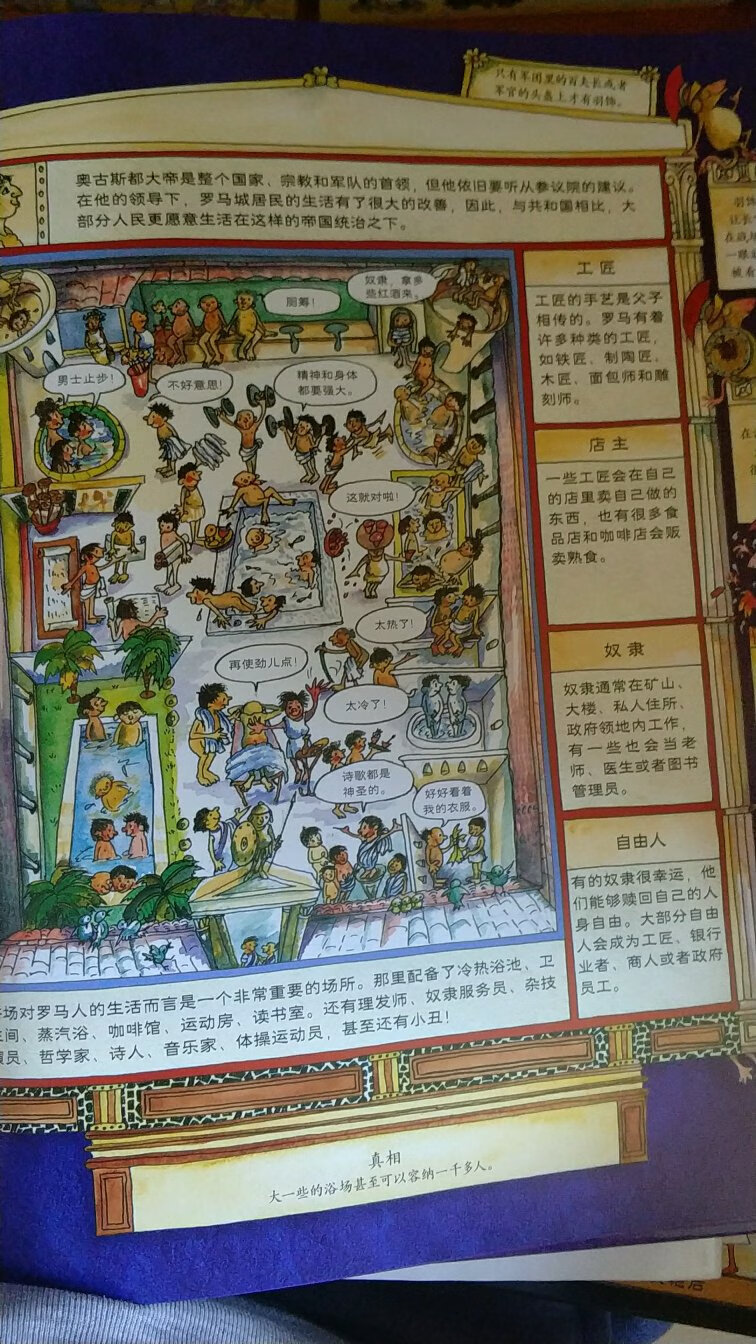 只有军团里的百夫长或者
军官的头盔上才有羽饰。
奥古斯都大帝是整个国家、宗教和军队的首领，但他依旧要听从参议院的建议。
在他的领导下，罗马城居民的生活有了很大的改善，因此，与共和国相比，大
部分人民更愿意生活在这样的帝国统治之下。
奴隶，拿多
些红酒来。
厕筹！
男士止步！
不好意思！
精神和身体
都要强大。
这就对啦！
太热了！
再使劲儿点！
太冷了！
诗歌都是
神圣的。
好好看着
我的衣服。
工匠
工匠的手艺是父子
相传的。罗马有着
许多种类的工匠，
如铁匠、制陶匠、
木匠、面包师和雕
刻师。
店主
一些工匠会在自己
的店里卖自己做的
东西，也有很多食
品店和咖啡店会贩
卖熟食。
奴隶
奴隶通常在矿山、
大楼、私人住所、
政府领地内工作，
有一些也会当老
师、医生或者图书
管理员。
自由人
有的奴隶很幸运，他
们能够赎回自己的人
身自由。大部分自由
人会成为工匠、银行
业者、商人或者政府
员工。
场对罗马人的生活而言是一个非常重要的场所。那里配备了冷热浴池、卫
生间、蒸汽浴、咖啡馆、运动房、读书室。还有理发师、奴隶服务员、杂技
演员、哲学家、诗人、音乐家、体操运动员，甚至还有小丑！
真相
大一些的浴场甚至可以容纳一千多人。